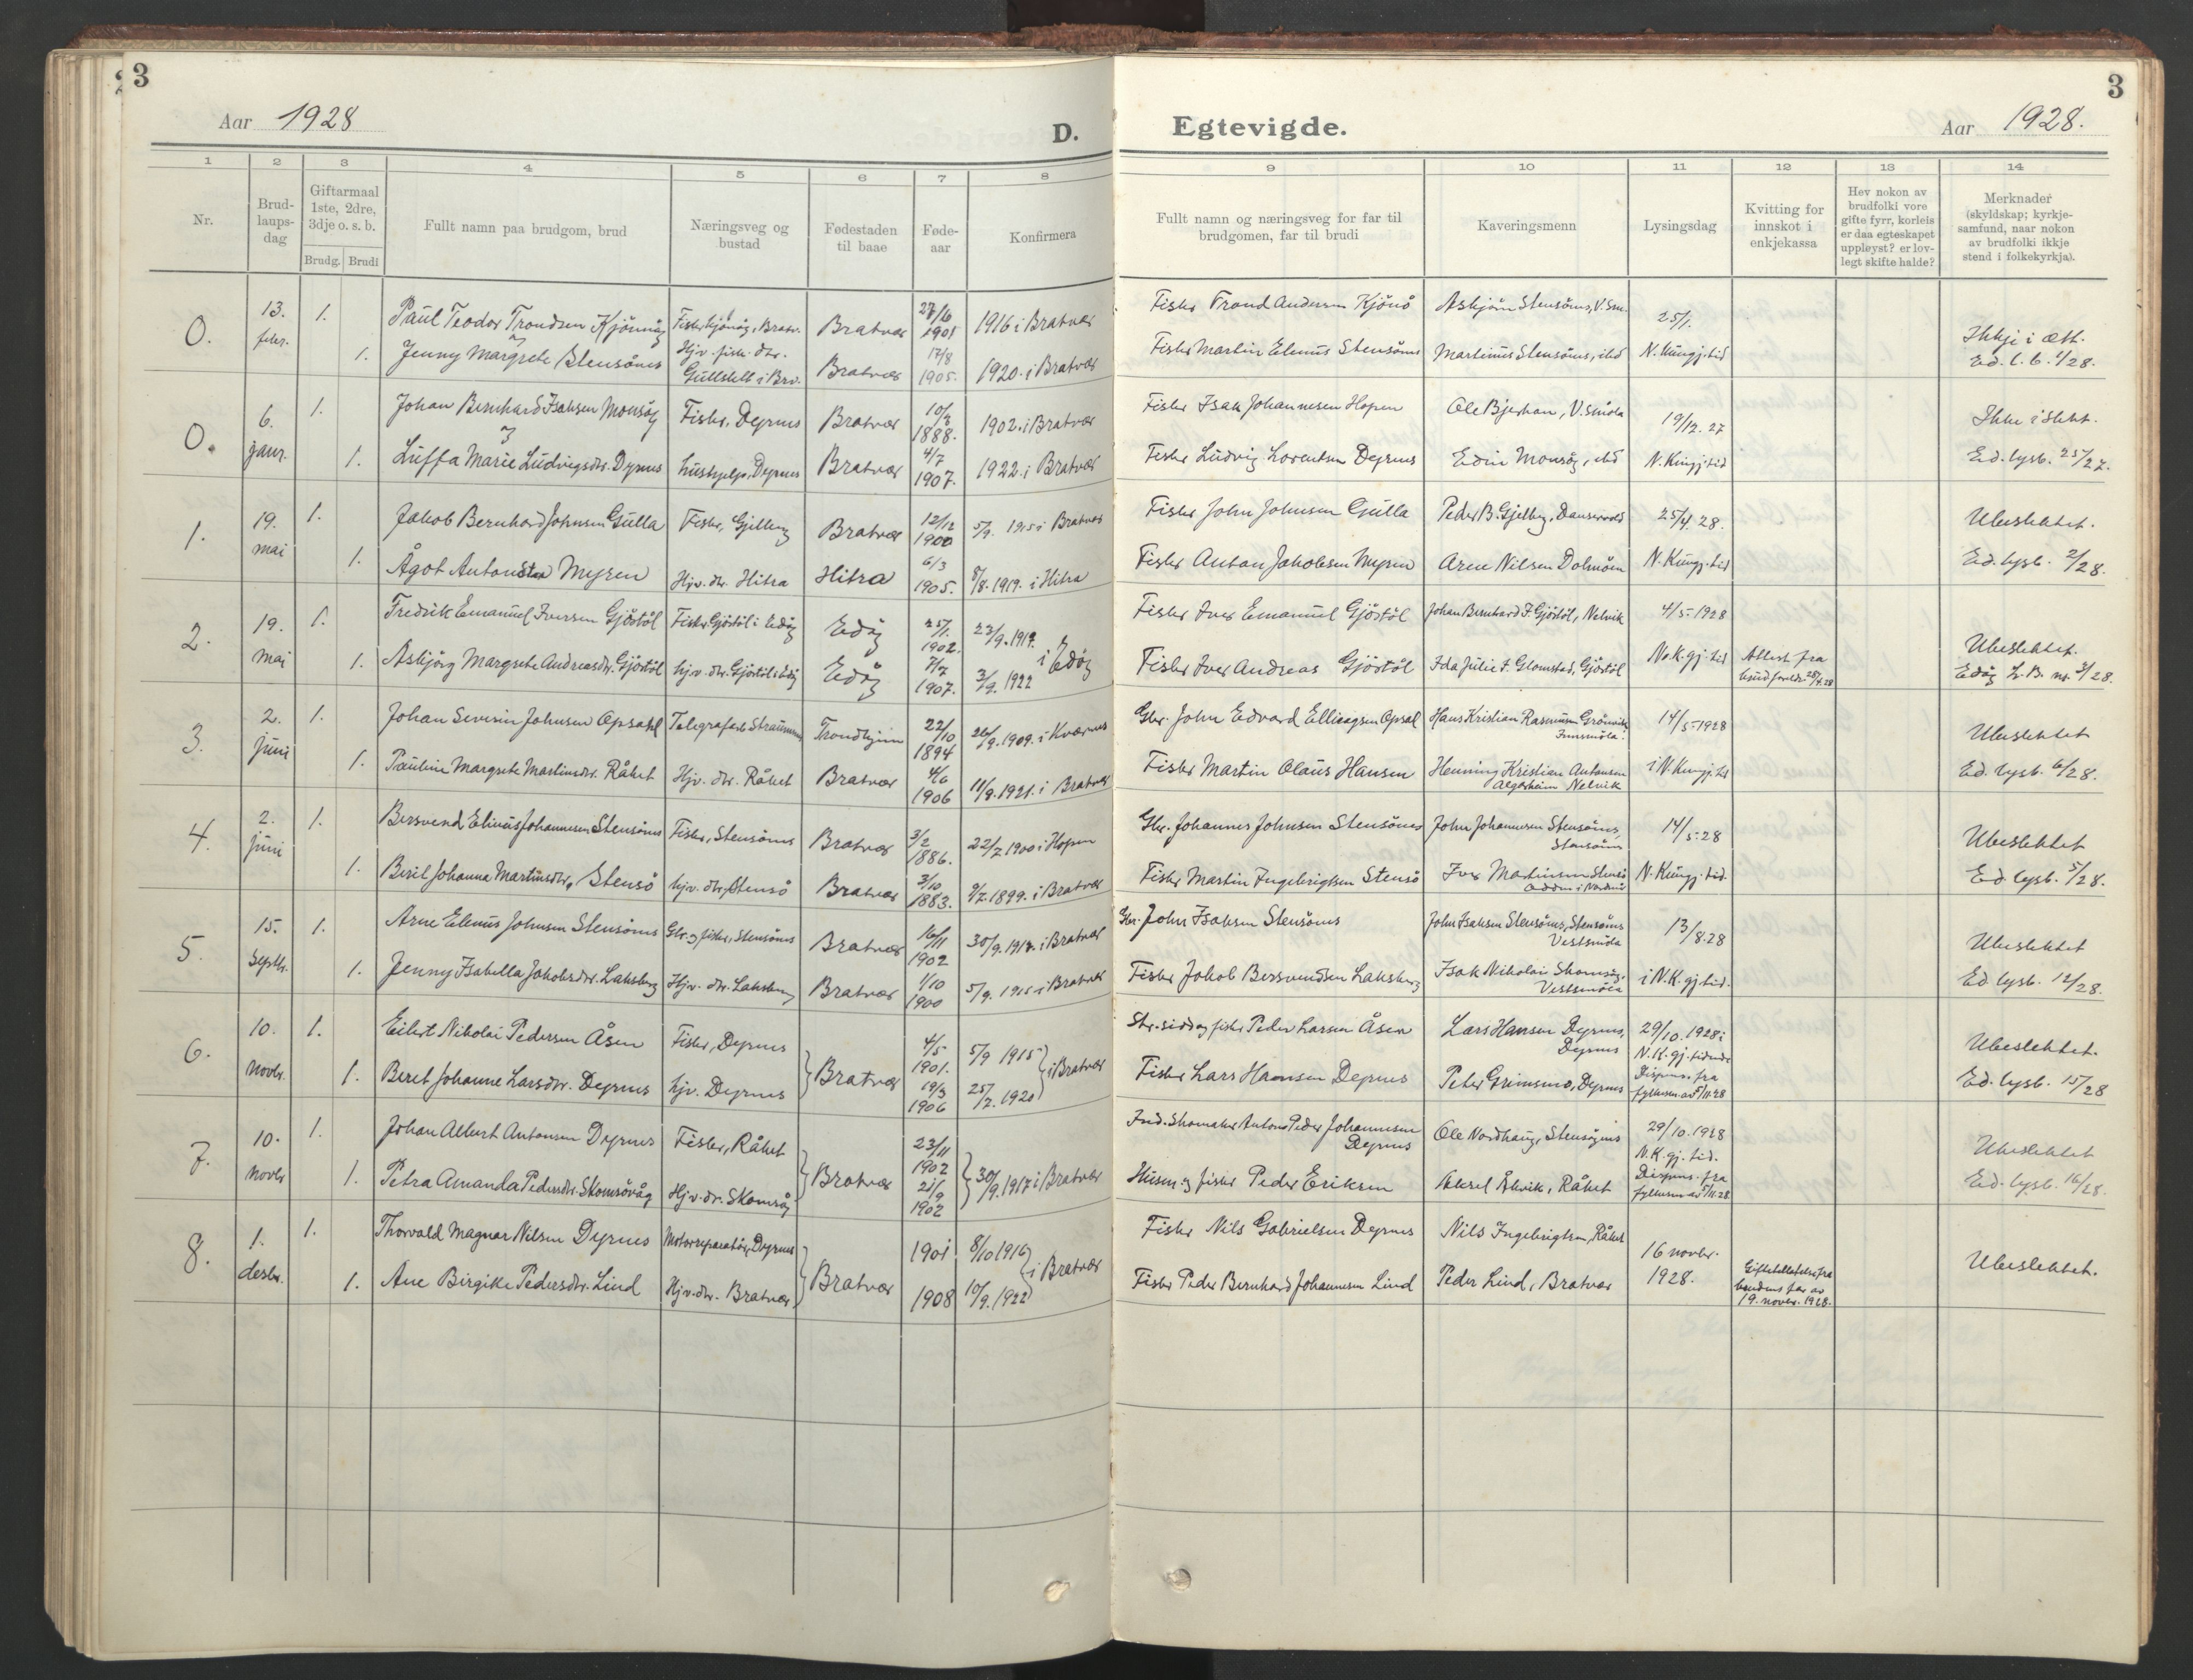 3
Aar 1928
D.
1 2 3 4 5 6 7 8
Nr.
Brud-
laups-
dag
Giftarmaal
1ste, 2dre,
3dje o. s. b.
Brudg. Brudi
Fullt namn paa brudgom, brud
Næringsveg og
bustad
Fødestaden
til baae
Føde-
aar
Konfirmera
0. 13. febr. 1. Paul Teodor Trondsen Kjönnöy Fisker Bratvær 27/6 1901 1916 i Bratvær
1. Jenny Margrete Stensönes Hjv. fisk. dtr. Bratvær 17/8 1905. 1920. i Bratvær
0. 6. janr. 1. Johan Bernhard Isaksen Monsöy Fisker, Dyrnes Bratvær 1888. 1902. i Bratvær
1. Luffa Marie Ludvigsdtr. Dyrnes hushjelp, Dyrnes Bratvær 4/7 1907. 1922. i Bratvær
1. 19. mai 1. Jakob Bernhard Johnsen Gulla Fisker, Gjelberg Bratvær 12/12 1900 5/9. 1915 i Bratvær
1. Ågot Antonsdtr Myren Hjv. dtr. Hitra Hitra 6/3 1905. 1919. i Hitra
2. 19. mai 1. Fredrik Emanuel Iversen Gjöstöl Fisker Gjöstöl i Edöy Edöy 1902. 23/9. 1917.
1. Asbjörg Margrete Andreasdtr. Gjöstöl hjv. dtr. Gjöstöl i Edöy Edöy 7/7 1907. 3/9. 1922 i Edöy
3. 2. juni 1. Johan Severin Johnsen Opsahl Telegrafarb Straumen Trondhjem 22/10 1894 26/9. 1909. i Kværnes
1. Pauline Margrete Martinsdtr. Råket Hjv. dtr. Råket Bratvær 4/6 1906 11/9. 1921. i Bratvær
4. 2. juni 1. Bersvend Elinus Johannesen Stensönes Fisker, Stensönes Bratvær 3/2 1886. 22/7 1900 i Hopen
1. Beril Johanna Martinsdtr. Stensö hjv. dtr. Stensö Bratvær 3/10 1883. 9/7. 1899. i Bratvær
5. 15. septbr. 1. Arne Elenus Johnsen Stensönes Gbr. og fisker, Stensönes Bratvær 16/11 1902 30/9. 1917. i Bratvær
1. Jenny Isabella Jakobsdtr. Laksberg Hjv. dtr. Laksberg Bratvær 1/10 1900 5/9. 1915 i Bratvær
6. 10. novbr. 1. Eilert Nikolai Pedersen Åsen Fisker, Dyrnes 4/5 1901. 5/9 1915
1. Beret Johanne Larsdtr. Dyrnes hjv. Dyrnes Bratvær 19/3 1906 25/7. 1920 i Bratvær
7. 10. novbr 1. Johan Albert Antonsen Dyrnes Fisker, Råket 23/11 1902
1. Petra Amanda Pedersdtr. Skomsövåg Hj.v. dr. Skomsöy Bratvær 21/9 1902 30/9. 1917 i Bratvær
8. 1. desbr. 1. Thorvald Magnar Nilsen Dyrnes Motorreparatör, Dyrnes 1901 8/10 1916
1. Ane Birgite Pedersdtr. Lind Hjv. dtr. Bratvær Bratvær 1908 10/9. 1922 i Bratvær
3
Egtevigde.
Aar 1928.
9 10 11 12 13 14
Fullt namn og næringsveg for far til
brudgomen, far til brudi
Kaveringsmenn
Lysingsdag
Kvitting for
innskot i
enkjekassa
Hev nokon av
brudfolki vore
gifte fyrr, korleis
er daa egteskapet
uppløyst? er lov-
legt skifte halde?
Merknader
(skyldskap; kyrkje-
samfund, naar nokon
av brudfolki ikkje
stend i folkekyrkja).
Fisker Trond Andersen Kjönö Asbjörn Stensönes, V. Sm. 25/1. Ikkje i ætt.
Fisker Martin Elenus Stensönes Martinus Stensönes, ibd N. Kungj. tid Ed. l. b. 1/28.
Fisker Isak Johannesen Hopen Ole Bjerkan, V. Smöla 19/12. 27 Ikke i slekt.
Fisker Ludvig Lorentsen Dyrnes Edin Monsöy, ibd N. Kungj. tid Ed. lysb. 25/27.
Fisker John Johnsen Gulla Peder B. Gjelberg, 25/4. 28. Ubeslektet.
Fisker Anton Jakobsen Myren Arne Nilsen Dolmöen N. Kungj. tid Ed. lysb. 2/28.
Fisker Iver Emanuel Gjöstöl Johan Bernhard F. Gjöstöl, Nelvik 4/5-1928 Ubeslektet.
Fisker Iver Andreas Gjöstöl Ida Julie F. Glomstad, Gjöstöl N. K. gj. tid Attest fra Edöy L. B. nr. 3/28.
Gbr. John Edvard Ellingsen Opsal Hans Kristian Rasmussen Grönvik, Innsmöla 14/5-1928 Ubeslektet
Fisker Martin Olaus Hansen Henning Kristian Antonsen Algarheim Nelvik i N. Kungj. tid Ed. lysb. 6/28.
Gbr. Johannes Johnsen Stensönes John Johannesen Stensönes, Stensönes 14/5-28 Ubeslektet
Fisker Martin Ingebrigtsen Stensö Iver Martinsen Stensö N. Kungj. tid. Ed. lysb. 5/28.
Gbr. John Isaksen Stensönes John Isaksen Stensönes, Stensönes Vestsmöla 13/8-28 Ubeslektet
Fisker Jakob Bersvendsen Laksberg Isak Nikolai Skomsöy, Vestsmöla i N. K. gj. tid. Ed. lysb. 12/28.
Peder Larsen Åsen Lars Hansen Dyrnes, Dyrnes 29/10. 1928 i N. K. gj. tidende Ubeslektet.
Fisker Lars Hansen Dyrnes Peter Grimsmo, Dyrnes Dispens. fra fylkesm. av 5/11-28 Ed. lysb. 15/28
Ind. Skomaker Antons Peder Johannesen Dyrnes Ole Nordhaug, Stensöynes 29/10. 1928 N. K. gj. tid. Ubeslektet
Husm. og fisker Peder Eriksen Aksel Åkvik, Råket Dispens. fra fylkesm av 5/11-28 Ed. lysb. 16/28.
Fisker Nils Gabrielsen Dyrnes Nils Ingebrigtsen, Råket 16 novbr. Ubeslektet.
Fisker Peder Bernhard Johannesen Lind Peder Lind, Bratvær 1928. Giftetillatelse fra brudens far av 19. novbr. 1928.